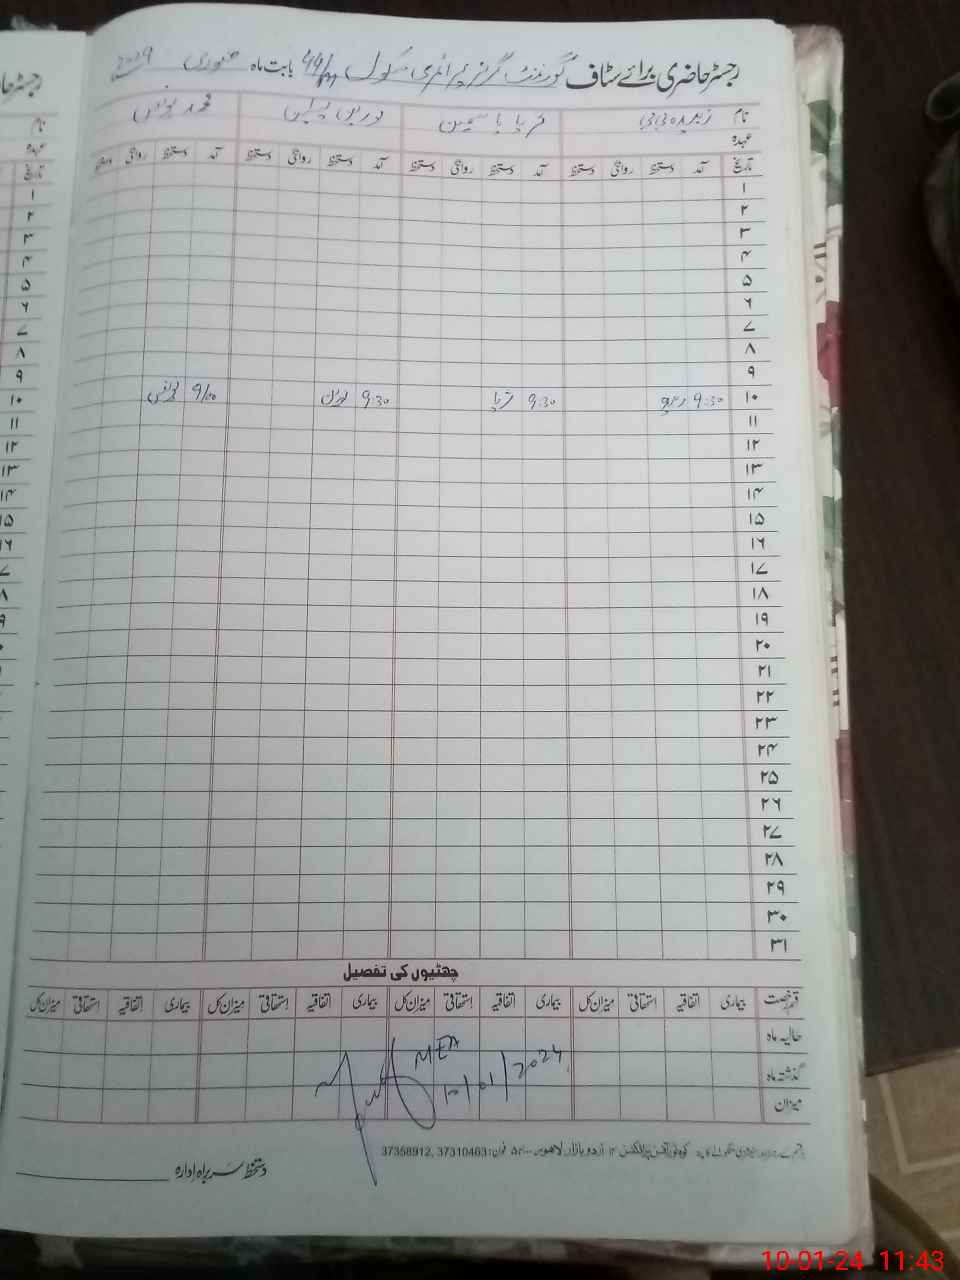 رجسٹر حاضری برائے سٹاف گورنمنٹ گرلز پرائمری سکول 44/ بابت ماہ جنوری
نام زبیدہ بی بی ثریا یاسمین نورین محمد یونس
عہدہ
تاریخ آمد دستخط روانگی دستخط آمد دستخط روانگی دستخط آمد دستخط روانگی دستخط آمد دستخط روانگی دستخط
۱
۲
۳
۴
۵
۶
۷
۸
۹
۱۰ 9:30 زبیدہ 9:30 ثریا 9:30 نورین 9/00 یونس
۱۱
۱۲
۱۳
۱۴
۱۵
۱۶
۱۷
۱۸
۱۹
۲۰
۲۱
۲۲
۲۳
۲۴
۲۵
۲۶
۲۷
۲۸
۲۹
۳۰
۳۱
چھٹیوں کی تفصیل
قسم رخصت بیماری اتفاقیہ استحقاقی میزان کل بیماری اتفاقیہ استحقاقی میزان کل بیماری اتفاقیہ استحقاقی میزان کل بیماری اتفاقیہ استحقاقی میزان کل
حالیہ ماہ
گذشتہ ماہ
میزان
MEA
10/01/2024
اردو بازار لاہور فون: 37310463, 37358912
دستخط سربراہ ادارہ
10-01-24 11:43